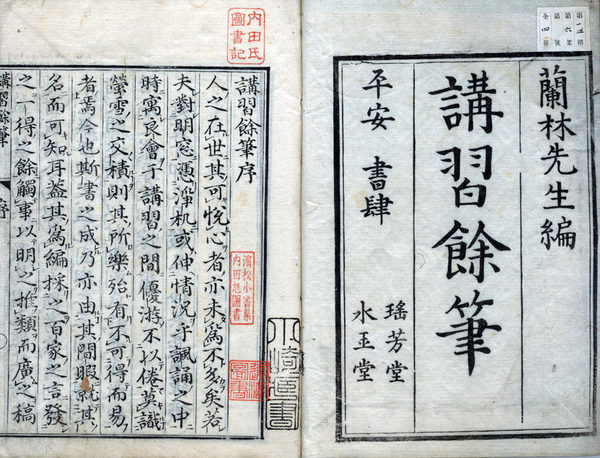 蘭林先生編
講習餘筆
平安 書肆
瑤芳堂
水玉堂
全四冊
内田氏
圖書記
講習餘筆序
人之在世其可悅心者亦未爲不多矣若
夫對明窓憑淨机或伸情況乎諷誦之中
時寓良會于講習之間優游不以倦莫識
螢雪之交積則其所樂殆有不可得而易
者焉今也斯書之成乃亦由其間暇就其
名而可知耳蓋其爲編採之百家之言發
之一得之餘觸事以明之推類而廣之稿
濱松小書巢
内田氏圖書
講習餘筆
序